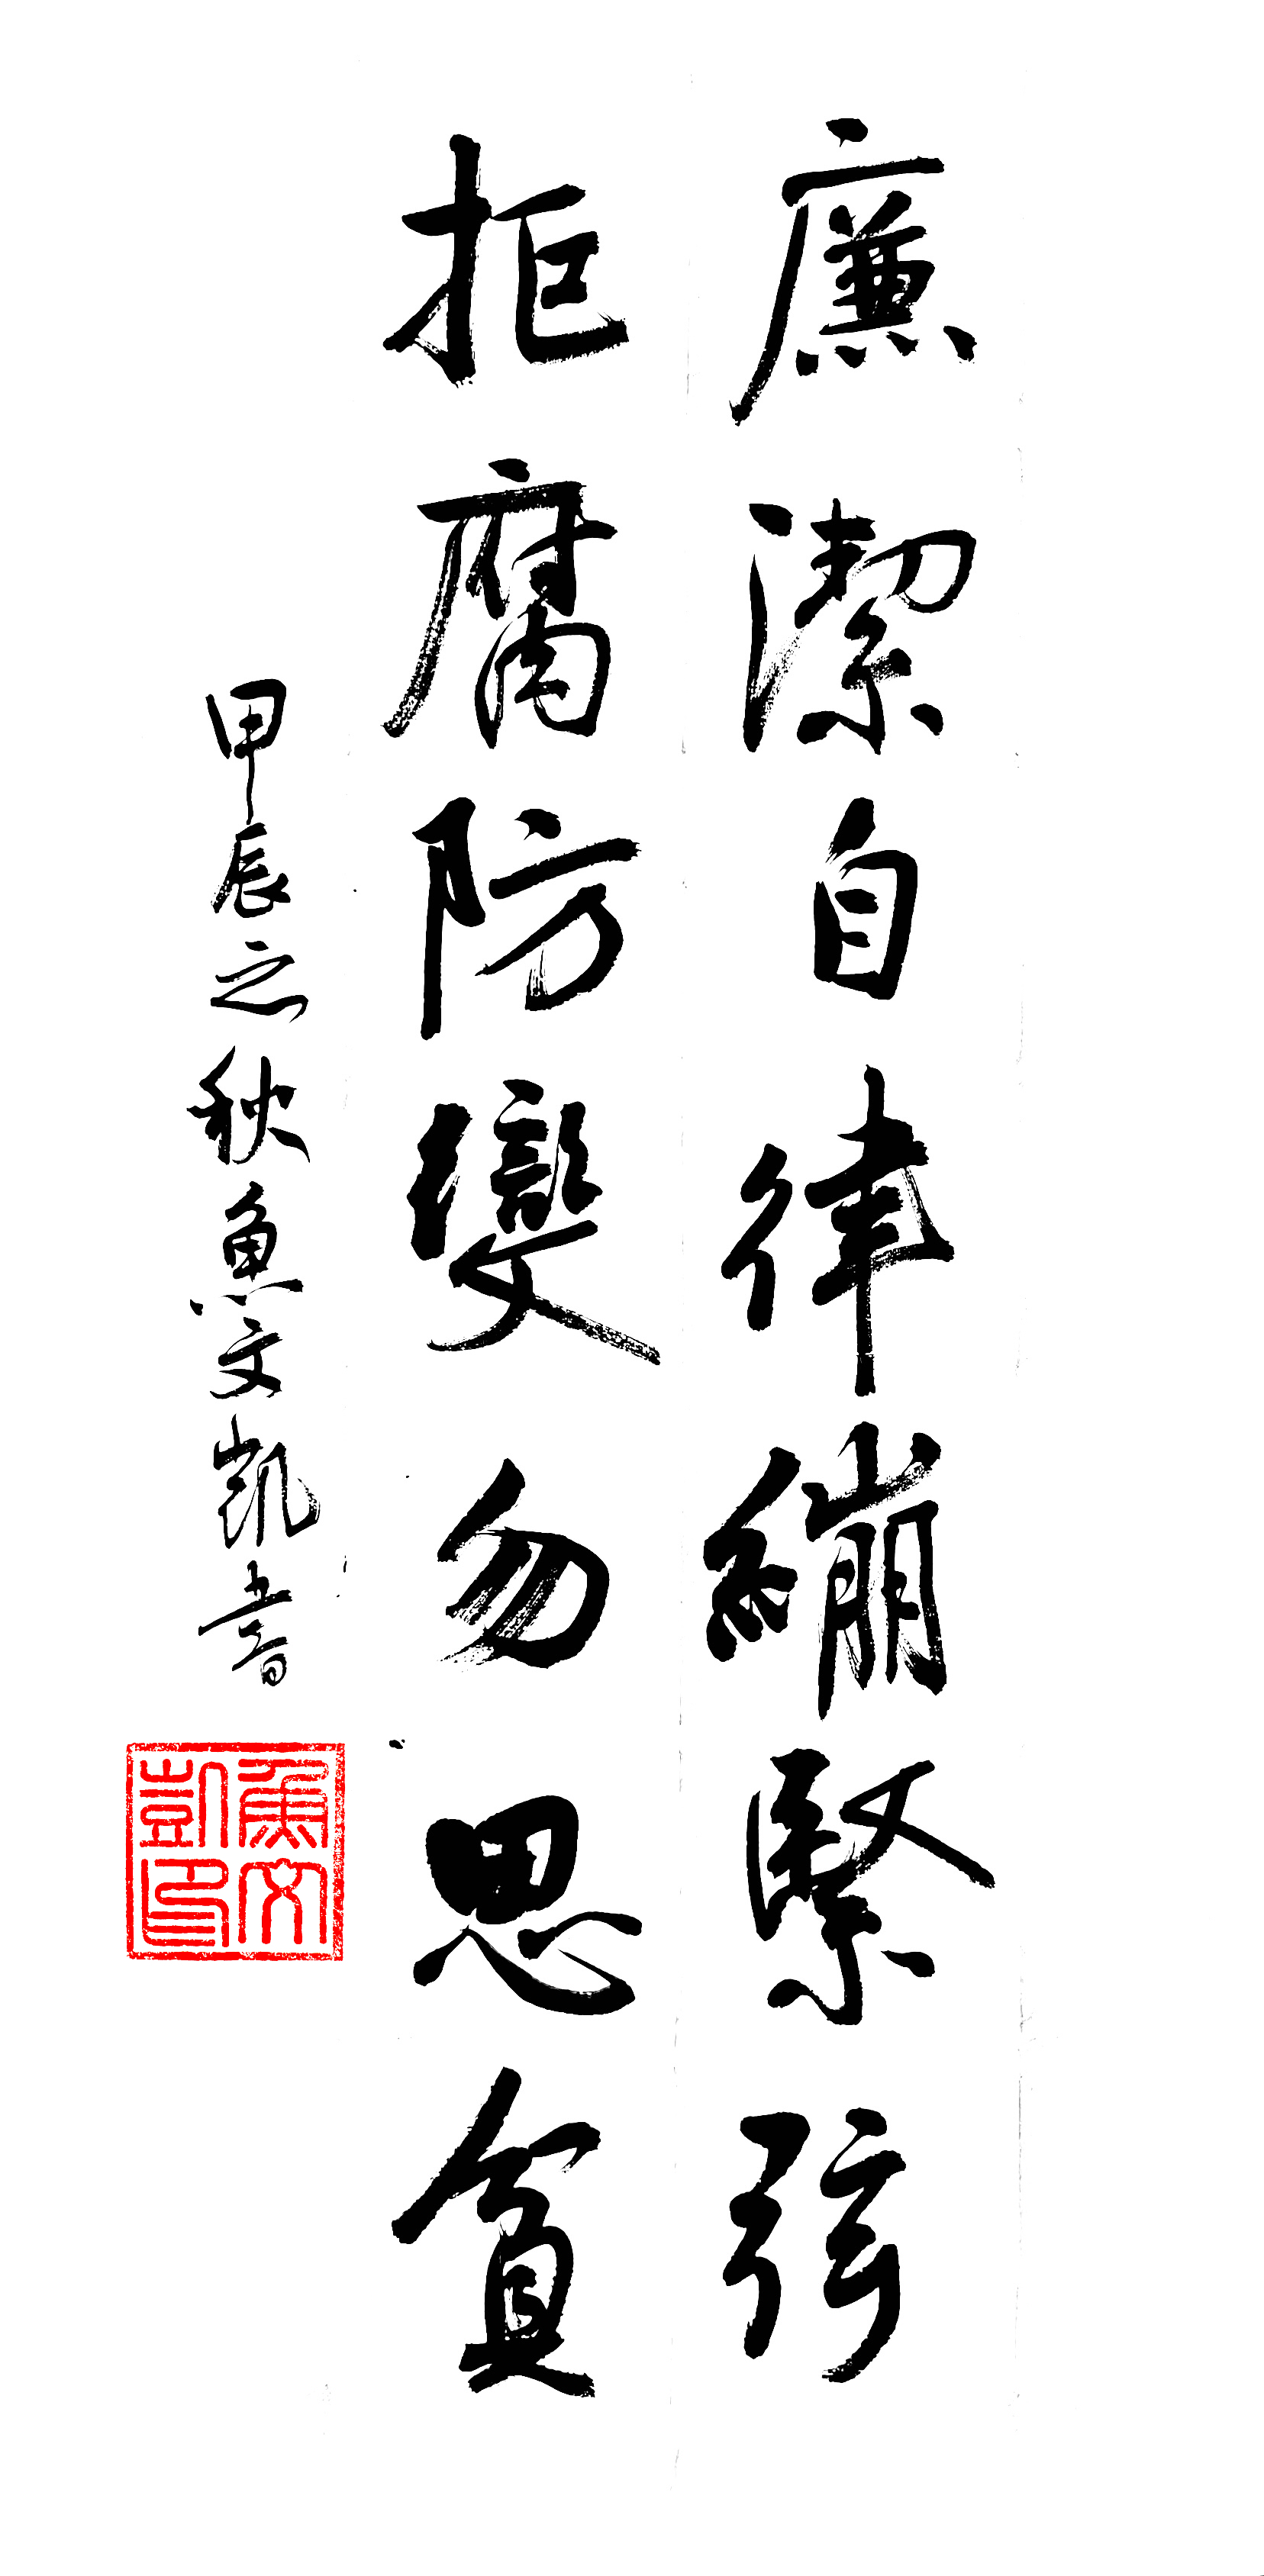 廉潔自律繃緊弦
拒腐防變勿思貪
甲辰之秋魚文凱書
魚文凱印